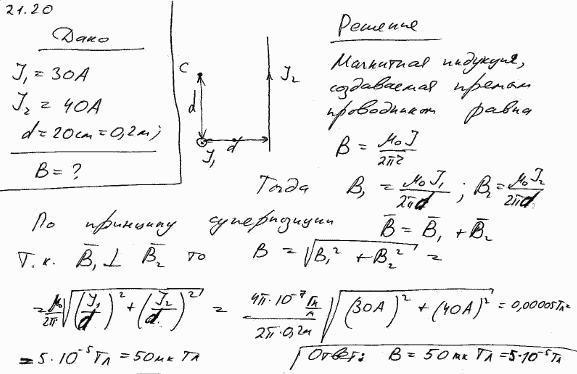 21.20
Дано
J₁ = 30A
J₂ = 40A
d = 20cm = 0,2м;
B = ?
C
d
J₁
d
J₂
Решение
Магнитная индукция,
создаваемая прямым
проводником равна
B = μ₀J / 2πr
Тогда B₁ = μ₀J₁ / 2πd ; B₂ = μ₀J₂ / 2πd
По принципу суперпозиции B̄ = B̄₁ + B̄₂
Т.к. B̄₁ ⊥ B̄₂ то B = √(B₁² + B₂²) =
= μ₀/2π √((J₁/d)² + (J₂/d)²) = 4π·10⁻⁷ Гн/м / 2π·0,2м √((30A)² + (40A)²) = 0,00005Тл =
= 5·10⁻⁵Тл = 50мкТл
Ответ: B = 50мкТл = 5·10⁻⁵Тл